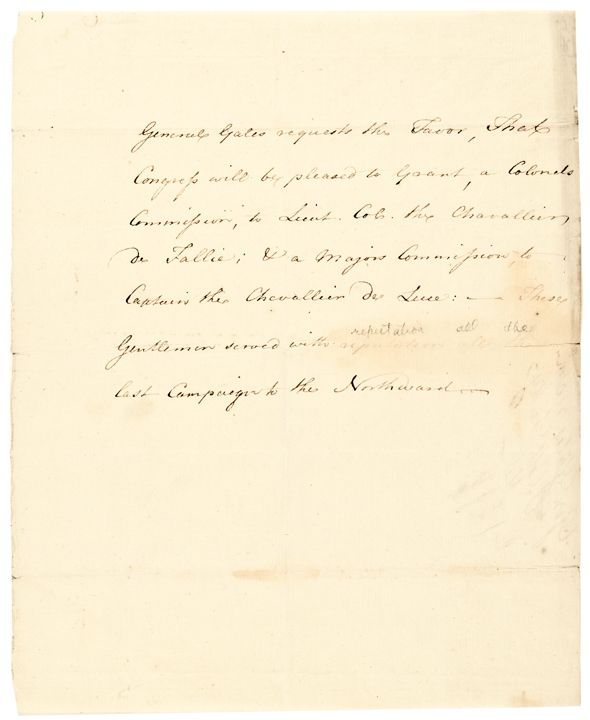 General Gates requests the Favor, That
Congress will be pleased to Grant, a Colonels
Commission, to Lieut. Col. the Chavallier,
de Fallie; & a Majors Commission, to
Captain the Chevallier De Luce: — These
repertation all the
Gentlemen served with reputation all the
last Campaign to the Northward —